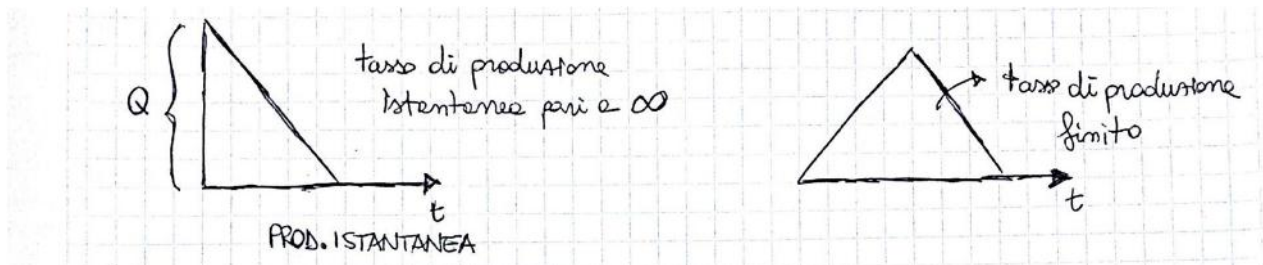 Q
tasso di produzione
istantanea pari a ∞
t
PROD. ISTANTANEA
tasso di produzione
finito
t